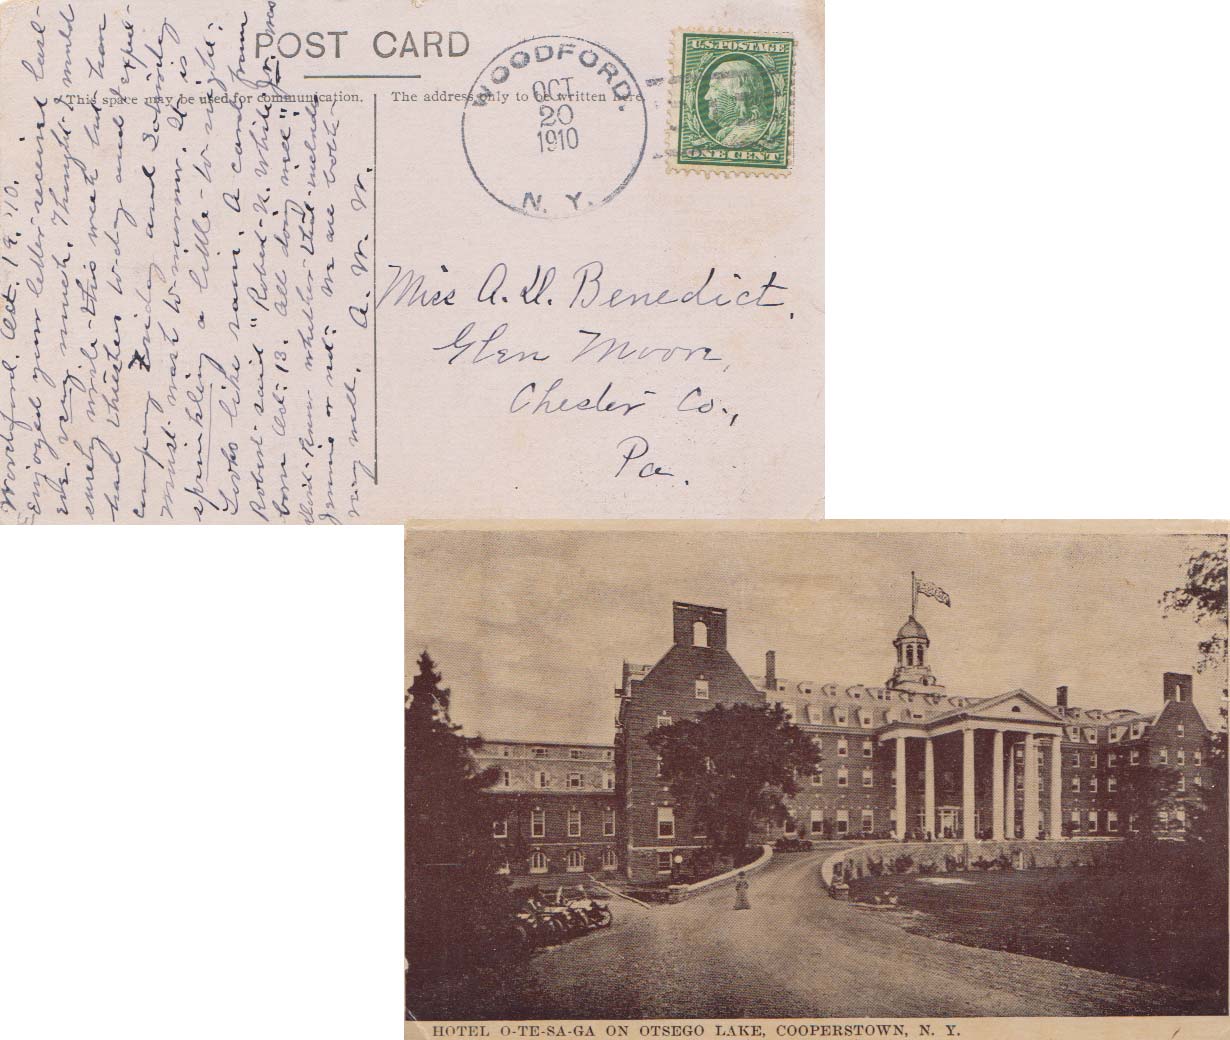 POST CARD
This space may be used for communication.
The address only to be written here.
WOODFORD.
OCT
20
1910
N. Y.
U.S. POSTAGE
ONE CENT
Woodford. Oct. 19. '10.
Enjoyed your letter received last
eve. very much. Thought I would
surely write this week but have
had thrashers to day and expect
company Friday and Saturday
must wait to morrow. It is
sprinkling a little to night.
Looks like rain. A card from
Robert said "Robert N. White Jr. was
born Oct. 13. All doing well"
dont know whether that includes
Jennie or not. We are both
very well.
A. W. W.
Miss A. D. Benedict,
Glen Moore,
Chester Co.,
Pa.
HOTEL O-TE-SA-GA ON OTSEGO LAKE, COOPERSTOWN, N. Y.